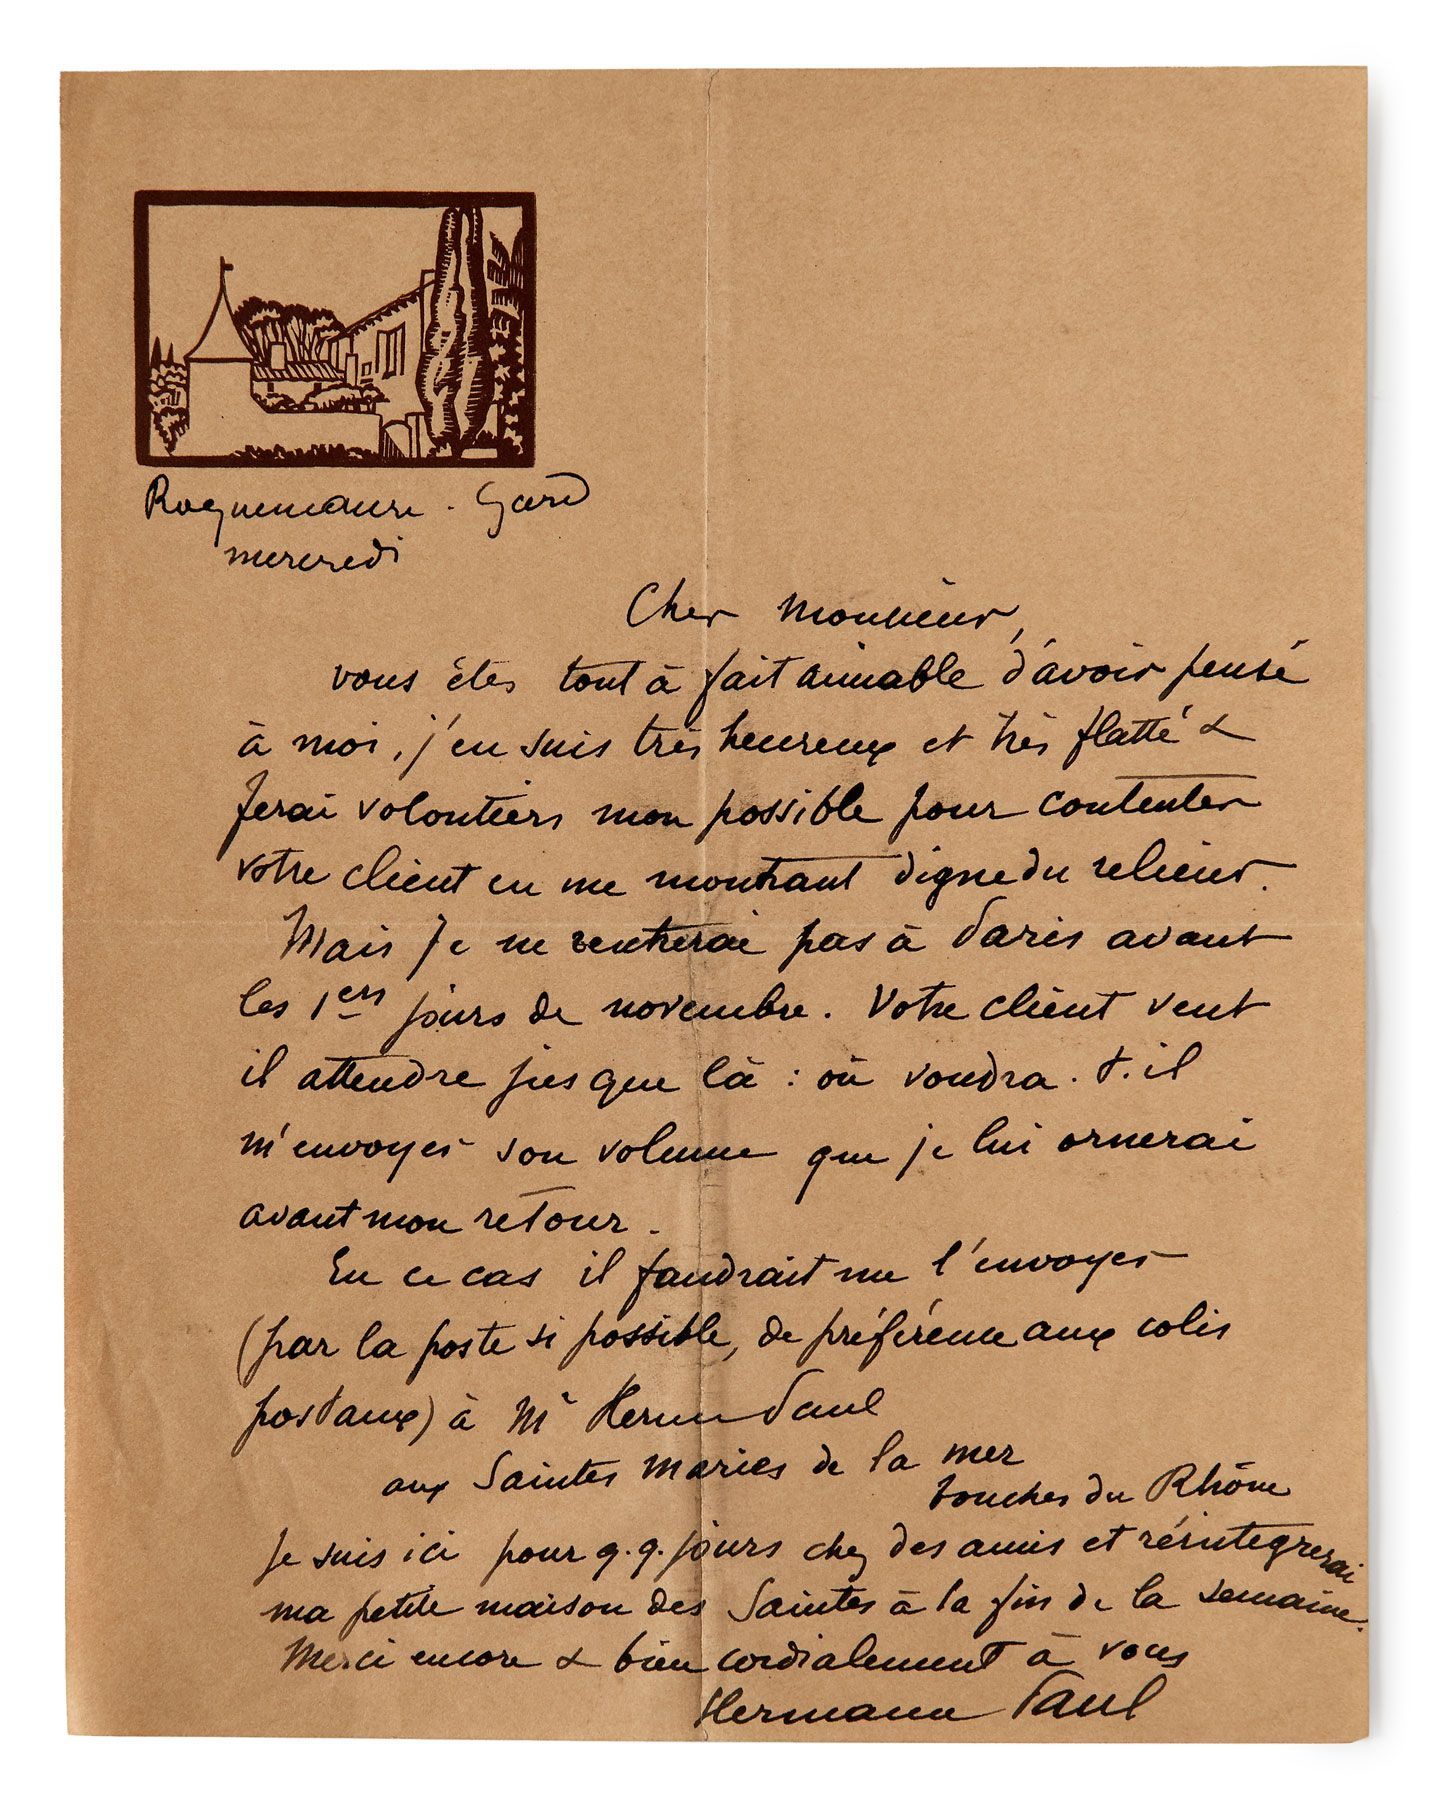 Roquemaure - Gard
mercredi
Cher Monsieur,
vous êtes tout à fait aimable d'avoir pensé
à moi, j'en suis très heureux et très flatté &
ferai volontiers mon possible pour contenter
votre client en me montrant digne du relieur.
Mais je ne rentrerai pas à Paris avant
les 1ers jours de novembre. Votre client veut
il attendre jusque là : où voudra-t-il
m'envoyer son volume que je lui ornerai
avant mon retour.
En ce cas il faudrait me l'envoyer
(par la poste si possible, de préférence aux colis
postaux) à Mr Herm Paul
aux Saintes Maries de la mer
bouches du Rhône
Je suis ici pour q.q. jours chez des amis et réintegrerai
ma petite maison des Saintes à la fin de la semaine.
Merci encore & bien cordialement à vous
Hermann Paul